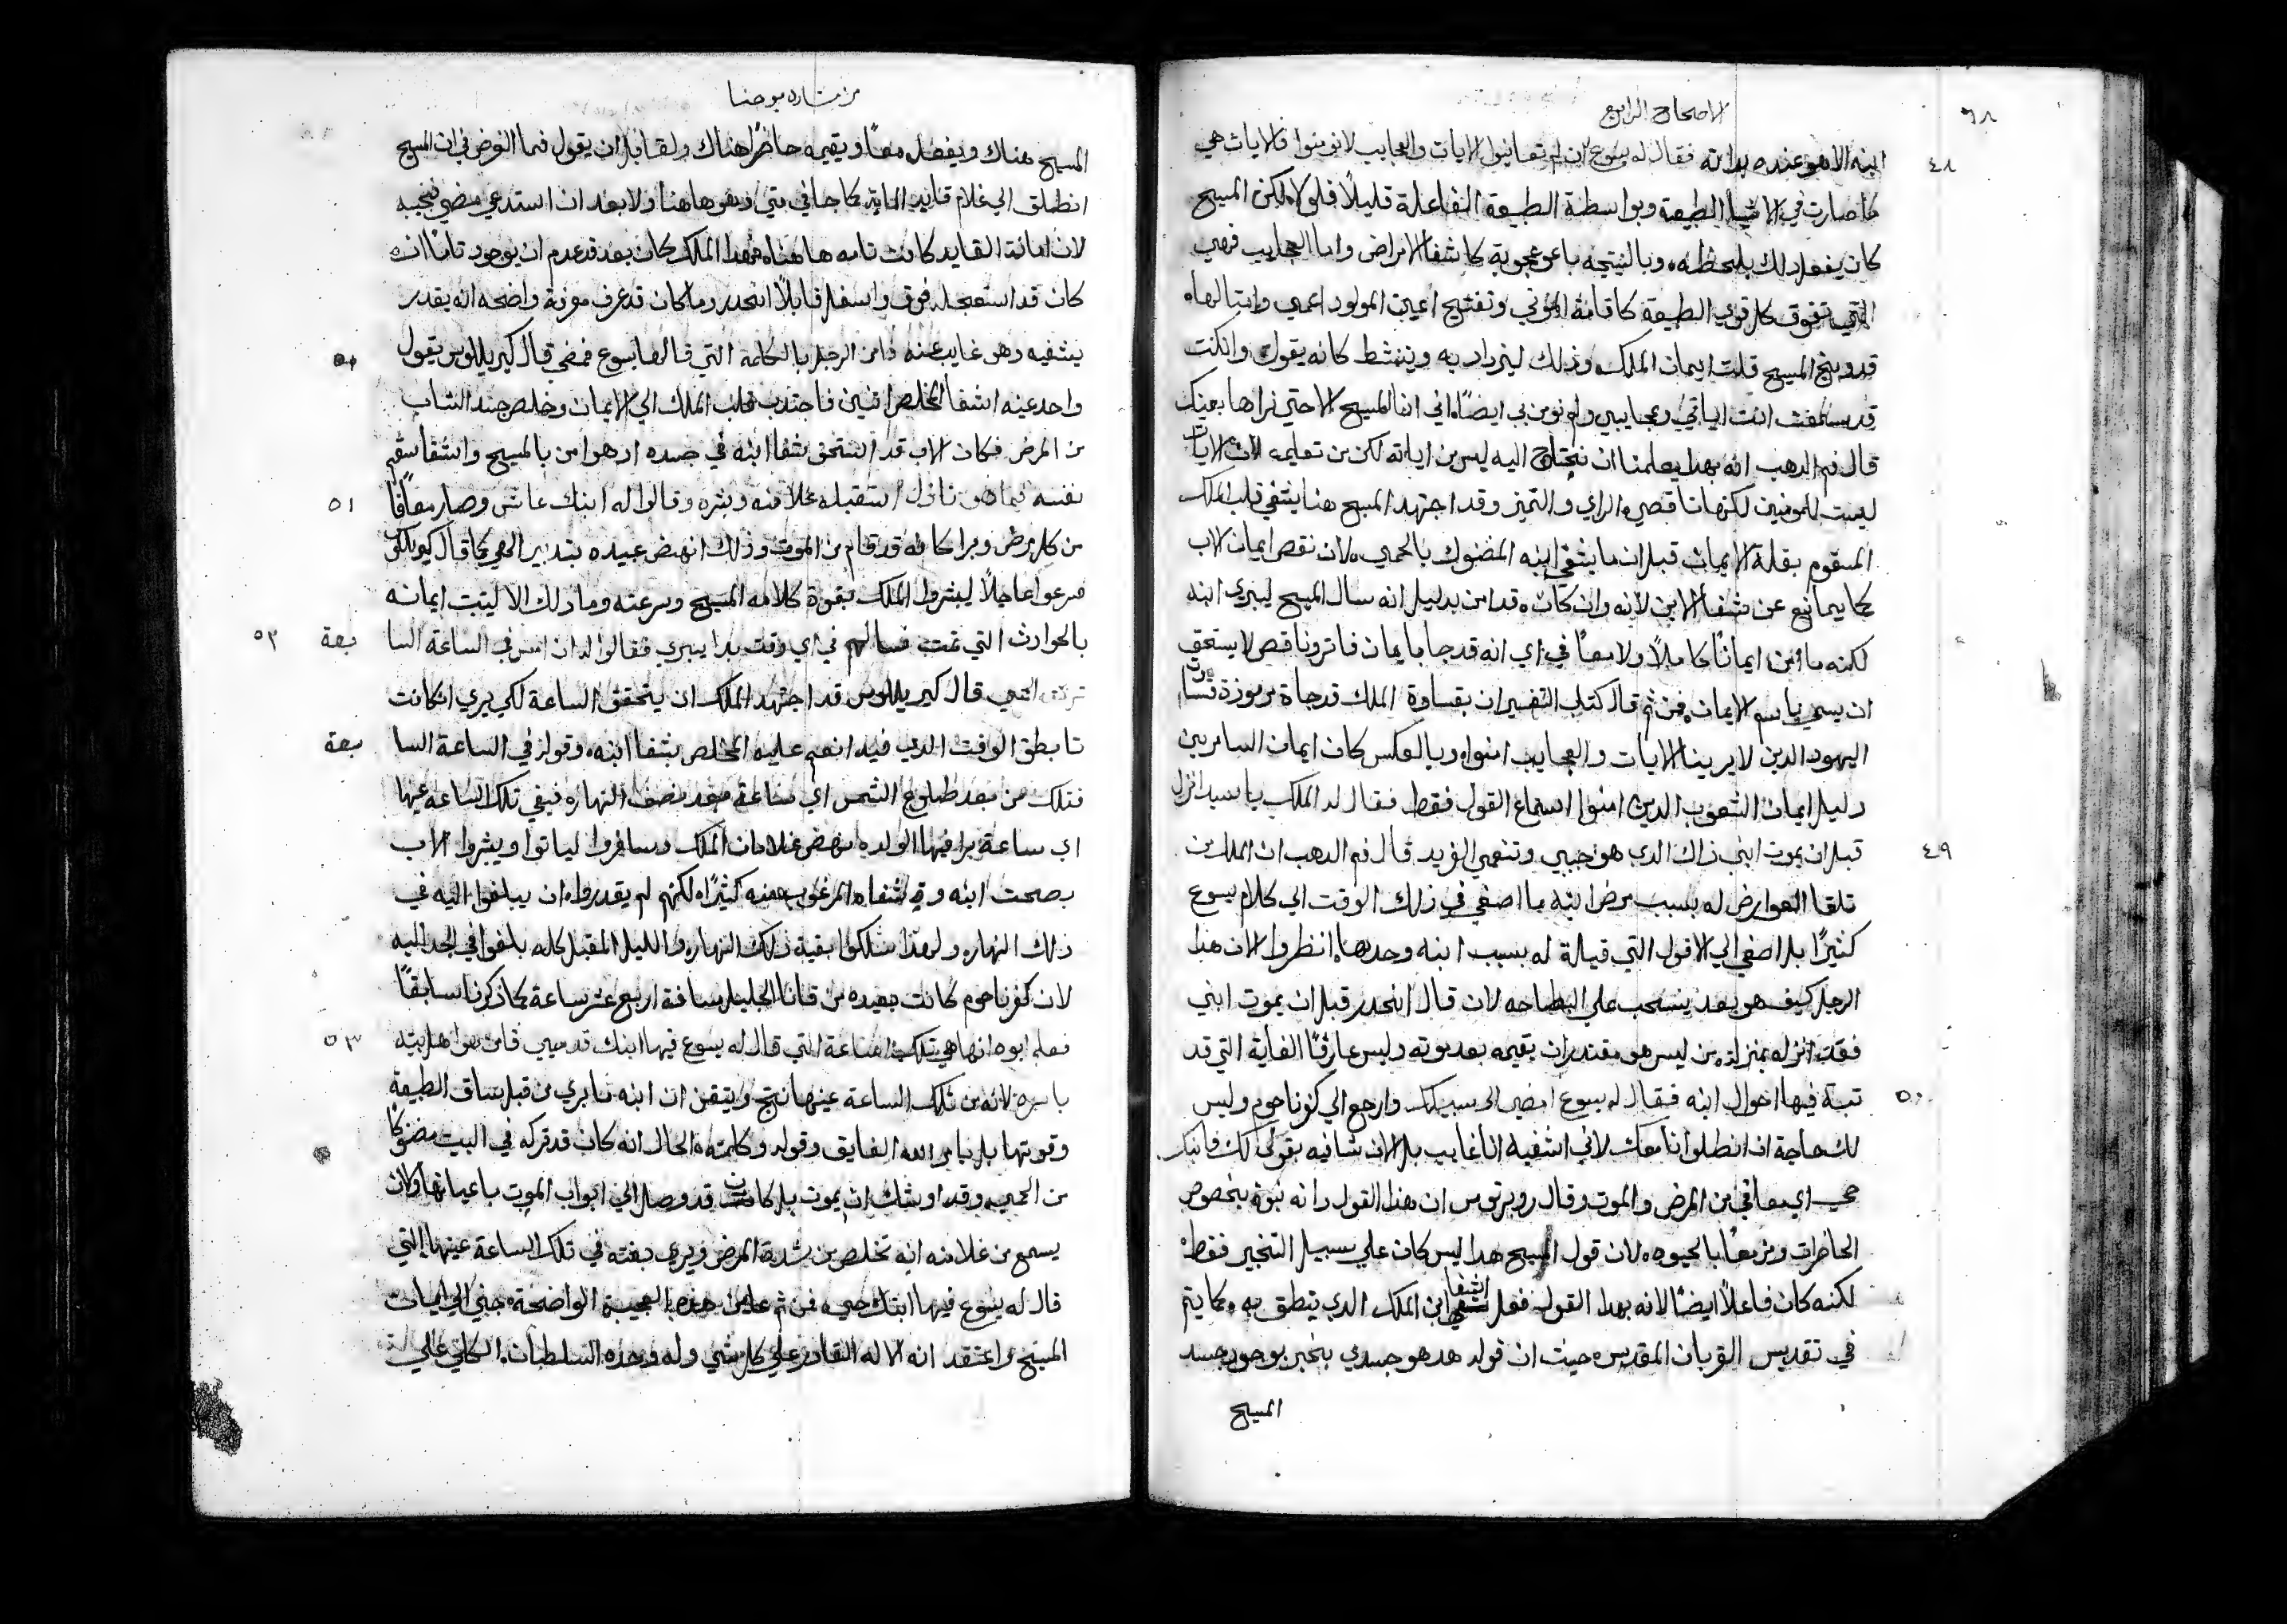 الاصحاح الرابع
٦٨
٤٨ ابنه الا هو عنده بداته فقال له يسوع ان لم تعاينوا الايات والعجايب لا تومنوا فالايات هي
ما صارت في الاشيا الطبيعة وبواسطة الطبيعة الفاعلة قليلاً قلولا لكن المسيح
كان يفعل دلك بلحظه وبالنتيجه باعجوبة كاشفا الامراض واما العجايب فهي
التي تفوق كل قوي الطبيعة كاقامة الموتي وتفتيح اعين المولود اعمي وامتالها
قد وبخ المسيح قلت ايمان الملك وذلك ليزداد به وينشط كانه يقول وان كنت
قد سمعت انت اياتي وعجايبي ولم تومن بي ايضاً اني انا المسيح الا حتي نراها بعينك
قال فم الدهب انه بهدا يعلمنا ان نحتاج اليه ليس من اياته لكن من تعليمه لان الايات
ليست للمومنين لكنها لناقصي الراي والتميز وقد اجتهد المسيح هنا يشفي قلب الملك
المسقوم بقلة الايمان قبل ان ما يشفي ابنه المضنوك بالحمي لان نقص ايمان الاب
كما يمانع عن شفا الابن لانه وان كان قد امن بدليل انه سال المسيح ليبري ابنه
لكنه ما امن ايماناً كاملاً ولا معناً في اي انه قد جا بايمان فاتر وناقص لا يستحق
ان يسمي باسم الايمان فمن ثم قال كتاب التفسير ان بقساوة الملك قد جاة مرموزة قساوت
اليهود الدين لا يرينا الايات والعجايب امنوا وبالعكس كان ايمان السامريين
دليل ايمان الشعوب الدين امنوا استماع القول فقط فقال له الملك يا سيد انزل
٤٩ قبل ان يموت ابني ذاك الدي هو حبيبي وتنعمي الفريد قال فم الدهب ان الملك من
تلقا العوارض له بسبب مرض ابنه ما اصغي في ذلك الوقت الي كلام يسوع
كثيرًا بل اصغي الي الاقول التي قيلة له بسبب ابنه وحدها انظروا الان هدا
الرجل كيف هو بعد ينسحب علي البطاحه لان قال انحدر قبل ان يموت ابني
فقد انزله بمنزلة من ليس هو مقتدر ان يقيمه بعد موته وليس عارفاً الغاية التي قد
٥٠ تبة فيها احوال ابنه فقال له يسوع امضي الي سبيلك وارجع الي كفرناحوم وليس
لك حاجة ان انطلق انا معك لاني اشفيه انا غايب بل الان شافيه بقولي لك فابنك
حي اي معافي من المرض والموت وقال روبرتوس ان هذا القول دا نه نبوة بخصوص
الحاضرات ومزمعاً بالحيوه لان قول المسيح هدا ليس كان علي سبيل التخبير فقط
لكنه كان فاعلاً ايضاً لانه بهدا القول فعل الشفا ابن الملك الدي ينطق به كما يتم
في تقديس القربان المقدس حيث ان قوله هدا هو جسدي يخبر بوجود جسد
المسيح
من بشارة يوحنا
المسيح هناك ويفعله معاً ويقيمه حاضرًا هناك ولقايل ان يقول فما الغرض في ان المسيح
انطلق الي غلام قايد الماية كما جا في متي وهو هاهنا ولا بعد ان استدعي مضي فنجيبه
لان امانة القايد كانت تامه هاهنا فهدا الملك كان بعد قد عدم ان يوجود تاماً انه
كان قد استعجله فوق واسفل قايلاً انحدر وما كان قد عرف معرفة واضحه انه يقدر
يشفيه وهو غايب عنه وامن الرجل بالكلمه التي قالها يسوع فمضي قال كيريللوس يقول
واحد عينه اشفا المخلص اتنين فاجتدب قلب الملك الي الايمان وخلص جسد الشاب
من المرض فكان الاب قد استحق بشفا ابنه في جسده اد هو امن بالمسيح واشفا سقم
٥١ نفسه فيما هو نازل استقبله غلامنه وبشره وقالوا له ابنك عاش وصار معافا
من كل مرض وبرا كانه قد قام من الموت وذلك انهض عبيده بتدبير الحي كما قال كيرللس
مسرعوا عاجلاً ليبشروا الملك بقوة كلامه المسيح وسرعته وما دلك الا ليتبت ايمانه
٥٢ بالحوادث التي تمت فسالهم في اي وقت بدا يبري فقالوا له ان امس في الساعة السابعة
تركته الحمي قال كيريللوس قد اجتهد الملك ان يتحقق الساعة لكي يري ان كانت
تا بطق الوقت الدي فيه انعم عليه المخلص بشفا ابنه وقوله في الساعة السابعة
فتلك من بعد طلوع الشمس اي ساعة بعد نصف النهار ففي تلك الساعه عينها
اي ساعة برا فيها الولد نهض غلامان الملك وسافروا لياتوا ويبشروا الاب
بصحت ابنه وشفاه المرغوب منه كثيرًا لكنهم لم يقدروا ان يبلغوا اليه في
ذلك النهار ولهذا سلكوا بقية ذلك النهار والليل المقبل كله بلغوا في الغد اليه
لان كفرناحوم كانت بعيده من قانا الجليل مسافة اربع عشر ساعة كما ذكرنا سابقاً
٥٣ فعلم ابوه انها هي تلك الساعة التي قال له يسوع فيها ابنك قد حيي فامن هو اهل بيته
باسره لانه من تلك الساعة عينها نتج ويتقن ان ابنه ما بري من قبل سياق الطبيعة
وقوتها بل بامر الله الفايق وقوله وكلمته الحال انه كان قد تركه في البيت مضنوكا
من الحمي وقد اوشك ان يموت بل كانت قد وصل الي ابواب الموت باعيانها ولان
يسمع من غلامنه انه تخلص من شدة المرض وبري دفعته في تلك الساعة عينها التي
قال له يسوع فيها ابنك حي فمن ثم علم من هذه العجيبة الواضحة جني الي ايمان
المسيح واعتقد انه الاله القادر علي كل شي وله وحده السلطان الكلي علي